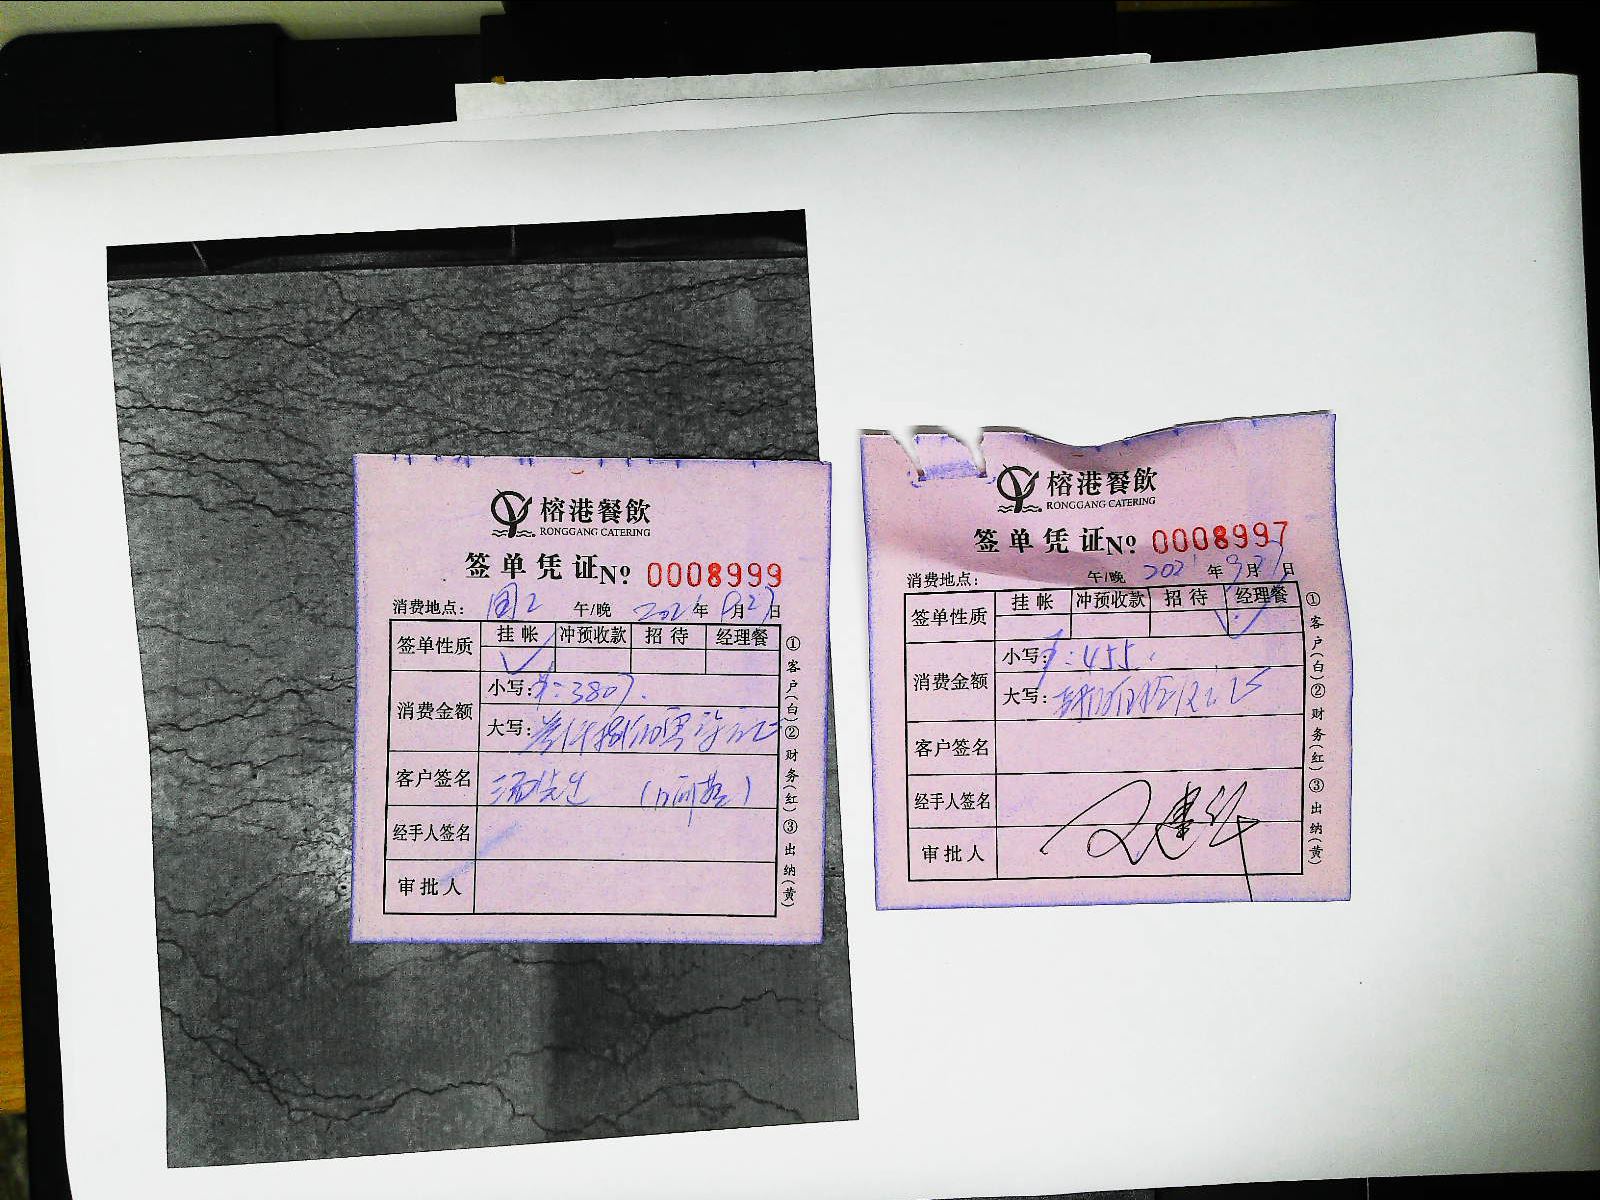 榕港餐飲
RONGGANG CATERING
签单凭证 No 0008999
消费地点: 午/晚 2021年9月27日
签单性质 挂帐 冲预收款 招待 经理餐
消费金额 小写: ¥:3807.
大写:
客户签名
经手人签名
审批人
①客户(白)②财务(红)③出纳(黄)
榕港餐飲
RONGGANG CATERING
签单凭证 No 0008997
消费地点: 午/晚 2021年9月27日
签单性质 挂帐 冲预收款 招待 经理餐
消费金额 小写: ¥:455.
大写:
客户签名
经手人签名
审批人
①客户(白)②财务(红)③出纳(黄)